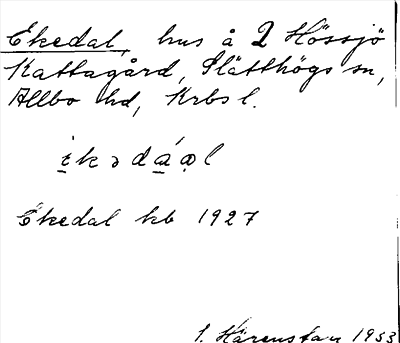 Ekedal, hus å 2 Hössjö
Kattagård, Slätthögs sn,
Allbo hd, Krbs l.
i̱kədá̱ọl
Ekedal kb 1927
1953